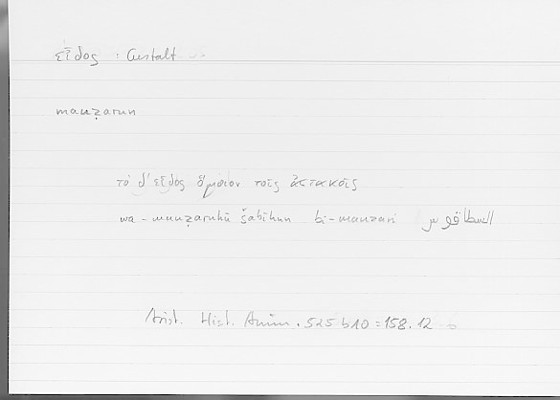 εἶδος : Gestalt
manẓarun
τὸ δ' εἶδος ὅμοιον τοῖς ἀστακοῖς
wa-manẓaruhū šabīhun bi-manẓari السطاقوس
Arist. Hist. Anim. 525 b10 = 158.12